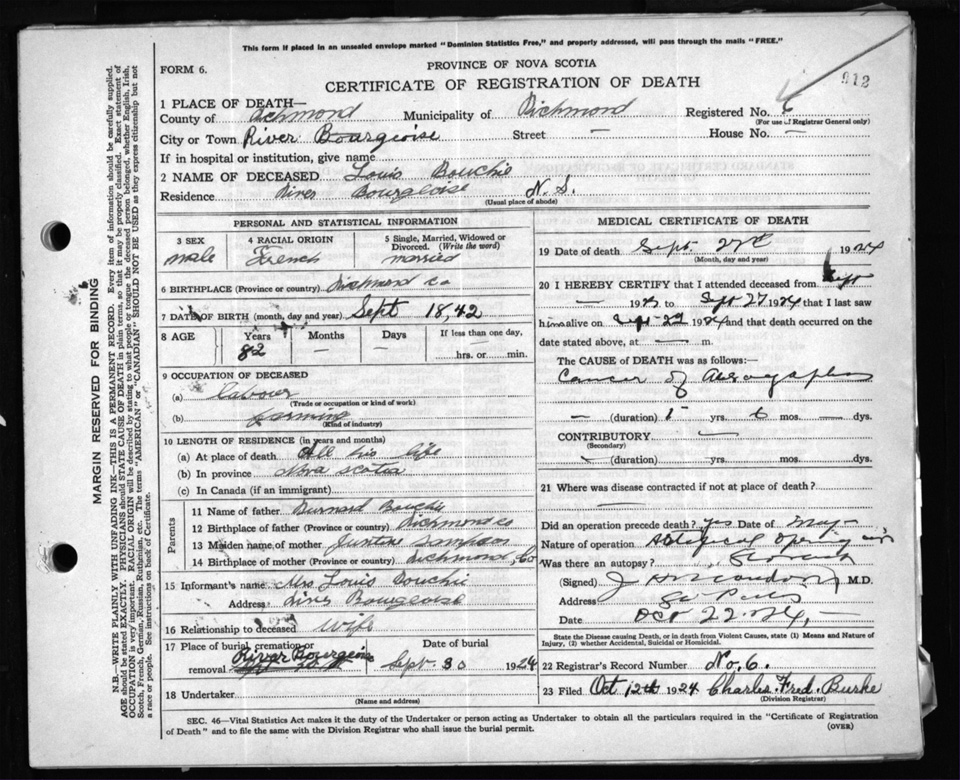 This form if placed in an unsealed envelope marked "Dominion Statistics Free," and properly addressed, will pass through the mails "FREE."
FORM 6.
PROVINCE OF NOVA SCOTIA
CERTIFICATE OF REGISTRATION OF DEATH
912
1 PLACE OF DEATH—
County of Richmond Municipality of Richmond Registered No. 6
(For use of Registrar General only)
City or Town River Bourgeoise Street — House No. —
If in hospital or institution, give name
2 NAME OF DECEASED Louis Bouchie
Residence River Bourgeoise N. S.
(Usual place of abode)
MARGIN RESERVED FOR BINDING
N.B.—WRITE PLAINLY WITH UNFADING INK—THIS IS A PERMANENT RECORD. Every item of information should be carefully supplied.
AGE should be stated EXACTLY. PHYSICIANS should STATE CAUSE OF DEATH in plain terms, so that it may be properly classified. Exact statement of
OCCUPATION is very important. RACIAL ORIGIN will be described by stating to what people or tongue the deceased person belonged, whether English, Irish,
Scotch, French, German, Russian, Ruthenian, etc. The terms "AMERICAN" or "CANADIAN" SHOULD NOT BE USED as they express citizenship but not
a race or people. See instructions on back of Certificate.
PERSONAL AND STATISTICAL INFORMATION
3 SEX
male
4 RACIAL ORIGIN
French
5 Single, Married, Widowed or
Divorced. (Write the word)
married
6 BIRTHPLACE (Province or country) Richmond Co
7 DATE OF BIRTH (month, day and year) Sept 18, 42
8 AGE
Years
82
Months
—
Days
—
If less than one day,
hrs. or min.
9 OCCUPATION OF DECEASED
(a) labour
(Trade or occupation or kind of work)
(b) farming
(Kind of industry)
10 LENGTH OF RESIDENCE (in years and months)
(a) At place of death All his life
(b) In province Nova Scotia
(c) In Canada (if an immigrant)
Parents
11 Name of father Burnard Bouchie
12 Birthplace of father (Province or country) Richmond co
13 Maiden name of mother Justine Sampson
14 Birthplace of mother (Province or country) Richmond, Co
15 Informant's name Mrs Louis Bouchie
Address River Bourgeoise
16 Relationship to deceased Wife
17 Place of burial, cremation or
removal River Bourgeois
Date of burial
Sept 30 1924
18 Undertaker
(Name and address)
MEDICAL CERTIFICATE OF DEATH
19 Date of death Sept 1924
(Month, day and year)
20 I HEREBY CERTIFY that I attended deceased from Sept
— 192 to Sept 27 1924 that I last saw
him alive on Sept 1924 and that death occurred on the
date stated above, at — m.
The CAUSE OF DEATH was as follows:—
Cancer of
— (duration) 1 yrs. 6 mos. — dys.
CONTRIBUTORY —
(Secondary)
(duration) yrs. mos. dys.
21 Where was disease contracted if not at place of death?
—
Did an operation precede death? yes Date of May—
Nature of operation opening in
Was there an autopsy? Stomach
(Signed) M.D.
Address St Peters
Date Oct 22. 24. —
State the Disease causing Death, or in death from Violent Causes, state (1) Means and Nature of
Injury, (2) whether Accidental, Suicidal or Homicidal.
22 Registrar's Record Number No. 6.
23 Filed Oct 12th 1924 Charles. Fred. Burke
(Division Registrar)
SEC. 46—Vital Statistics Act makes it the duty of the Undertaker or person acting as Undertaker to obtain all the particulars required in the "Certificate of Registration
of Death" and to file the same with the Division Registrar who shall issue the burial permit.
(OVER)